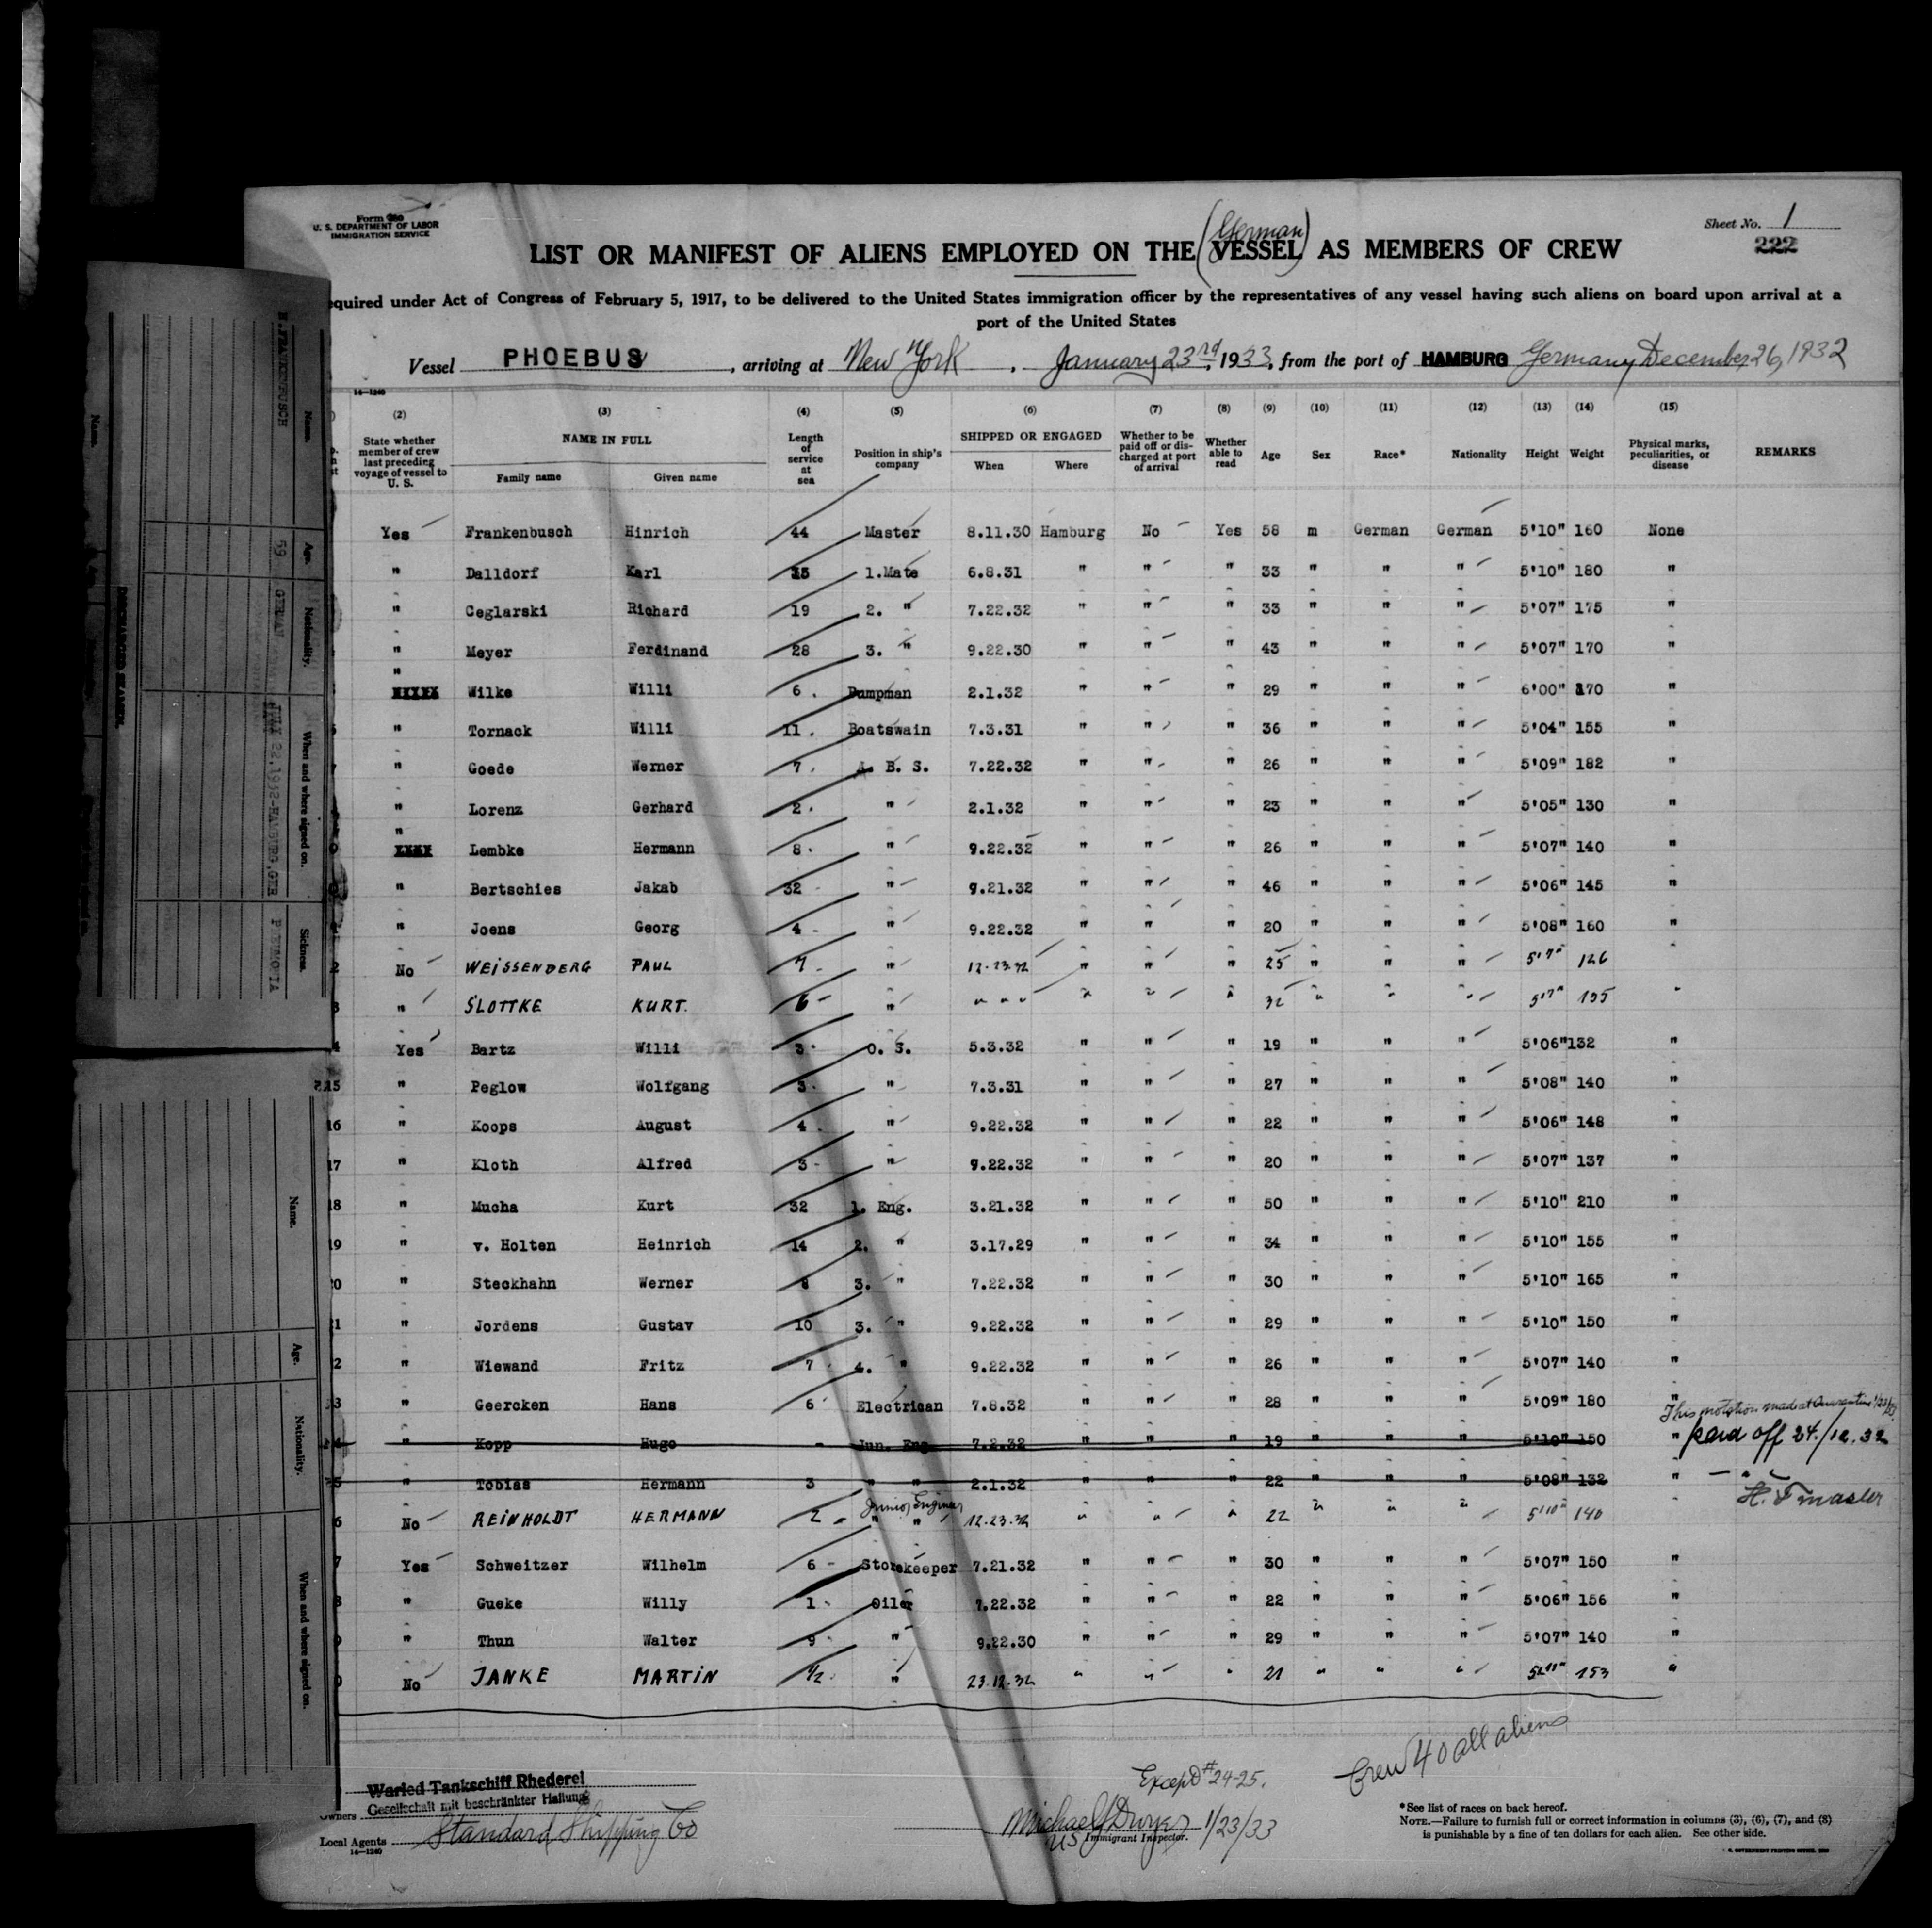 Form 680
U. S. DEPARTMENT OF LABOR
IMMIGRATION SERVICE
Sheet No. 1
222
(German)
LIST OR MANIFEST OF ALIENS EMPLOYED ON THE VESSEL AS MEMBERS OF CREW
equired under Act of Congress of February 5, 1917, to be delivered to the United States immigration officer by the representatives of any vessel having such aliens on board upon arrival at a
port of the United States
Vessel PHOEBUS, arriving at New York, January 23rd, 1933, from the port of HAMBURG Germany December 26, 1932
14-1240
(2) (3) (4) (5) (6) (7) (8) (9) (10) (11) (12) (13) (14) (15)
State whether member of crew last preceding voyage of vessel to U. S. NAME IN FULL Family name Given name Length of service at sea Position in ship's company SHIPPED OR ENGAGED When Where Whether to be paid off or discharged at port of arrival Whether able to read Age Sex Race* Nationality Height Weight Physical marks, peculiarities, or disease REMARKS
Yes Frankenbusch Hinrich 44 Master 8.11.30 Hamburg No Yes 58 m German German 5'10" 160 None
" Dalldorf Karl 15 1.Mate 6.8.31 " " " 33 " " " 5'10" 180 "
" Ceglarski Richard 19 2. " 7.22.32 " " " 33 " " " 5'07" 175 "
" Meyer Ferdinand 28 3. " 9.22.30 " " " 43 " " " 5'07" 170 "
" Wilke Willi 6 Pumpman 2.1.32 " " " 29 " " " 6'00" 170 "
" Tornack Willi 11 Boatswain 7.3.31 " " " 36 " " " 5'04" 155 "
" Goede Werner 7 A. B. S. 7.22.32 " " " 26 " " " 5'09" 182 "
" Lorenz Gerhard 2 " 2.1.32 " " " 23 " " " 5'05" 130 "
" Lembke Hermann 8 " 9.22.32 " " " 26 " " " 5'07" 140 "
" Bertschies Jakab 32 " 9.21.32 " " " 46 " " " 5'06" 145 "
" Joens Georg 4 " 9.22.32 " " " 20 " " " 5'08" 160 "
No WEISSENDERG PAUL 7 " 12.23.32 " " " 25 " " " 5'7" 126 "
" SLOTTKE KURT. 6 " " " " " " " 32 " " " 5'7" 135 "
Yes Bartz Willi 3 O. S. 5.3.32 " " " 19 " " " 5'06" 132 "
15 " Peglow Wolfgang 3 " 7.3.31 " " " 27 " " " 5'08" 140 "
16 " Koops August 4 " 9.22.32 " " " 22 " " " 5'06" 148 "
17 " Kloth Alfred 3 " 9.22.32 " " " 20 " " " 5'07" 137 "
18 " Mucha Kurt 32 1. Eng. 3.21.32 " " " 50 " " " 5'10" 210 "
19 " v. Holten Heinrich 14 2. " 3.17.29 " " " 34 " " " 5'10" 155 "
20 " Steckhahn Werner 8 3. " 7.22.32 " " " 30 " " " 5'10" 165 "
" Jordens Gustav 10 3. " 9.22.32 " " " 29 " " " 5'10" 150 "
" Wiewand Fritz 7 4. " 9.22.32 " " " 26 " " " 5'07" 140 "
" Geercken Hans 6 Electrican 7.8.32 " " " 28 " " " 5'09" 180 "
This notation made at Quarantine 1/23/33
" Kopp Hugo - Jun. Eng. 7.2.32 " " " 19 " " " 5'10" 150 " paid off 24./12.32
" Tobias Hermann 3 " " 2.1.32 " " " 22 " " " 5'08" 132 " - " -
Junior Engineer
H. F master
No REINHOLDT HERMANN 2 " " 12.23.32 " " " 22 " " " 5'10" 140 "
Yes Schweitzer Wilhelm 6 Storekeeper 7.21.32 " " " 30 " " " 5'07" 150 "
" Gueke Willy 1 Oiler 7.22.32 " " " 22 " " " 5'06" 156 "
" Thun Walter 9 " 9.22.30 " " " 29 " " " 5'07" 140 "
No JANKE MARTIN 1/2 " 23.12.32 " " " 21 " " " 153 "
Crew 40 all aliens
Except # 24-25.
Waried Tankschiff Rhederei
Gesellschaft mit beschränkter Haftung
Owners
Local Agents Standard Shipping Co
14-1240
Michael J Dwyer 1/23/33
US Immigrant Inspector.
*See list of races on back hereof.
NOTE.—Failure to furnish full or correct information in columns (3), (6), (7), and (8)
is punishable by a fine of ten dollars for each alien. See other side.
Name.
Age.
Nationality.
When and where signed on.
Sickness.
H.FRANKENBUSCH
59
GERMAN
JULY 22,1932-HAMBURG,GER
Name.
DISCHARGED SEAMEN
Name.
Age.
Nationality.
When and where signed on.